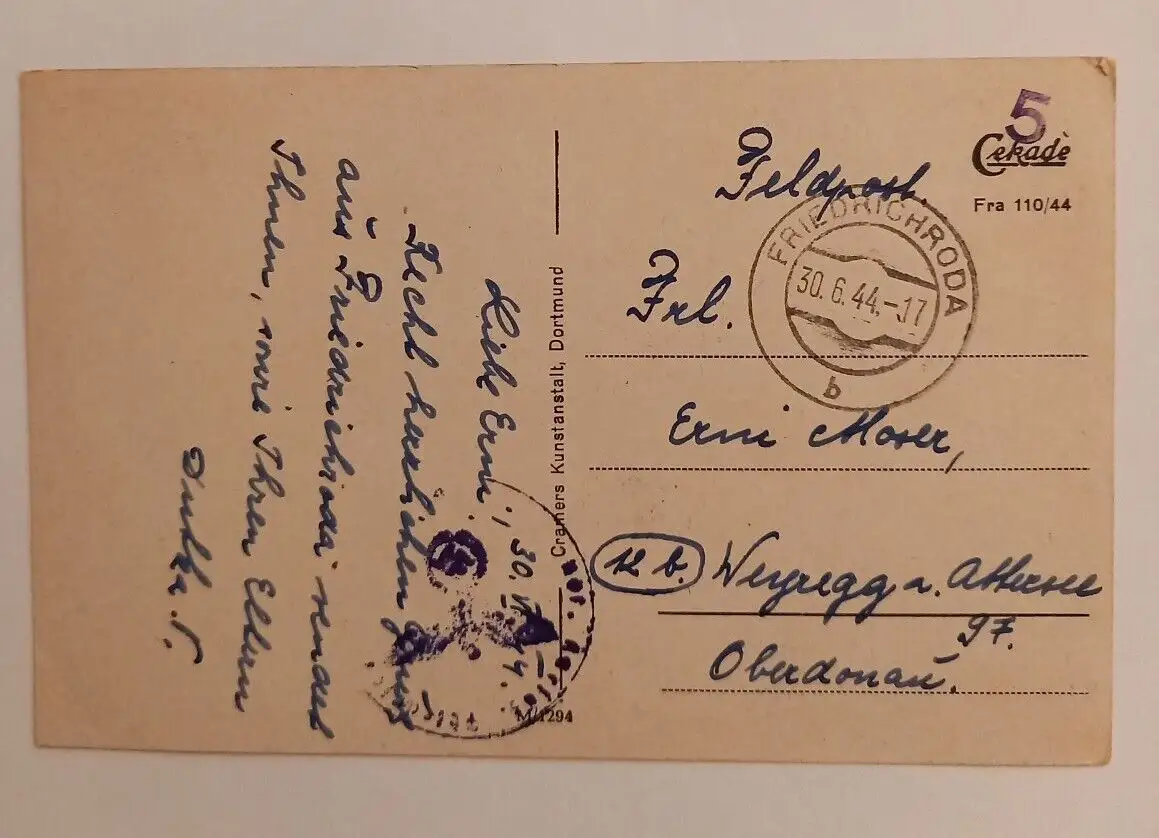 Liebe Erni, 30. VI. 44.
Recht herzlichen Gruß
aus Friedrichroda sendet
Ihnen, sowie Ihren Eltern
Cramers Kunstanstalt, Dortmund
M/1294
5
Cekadè
Fra 110/44
Feldpost.
FRIEDRICHRODA
30.6.44.-17
b
Frl.
Erni Moser,
12 b. Weyregg a. Attersee
97.
Oberdonau.